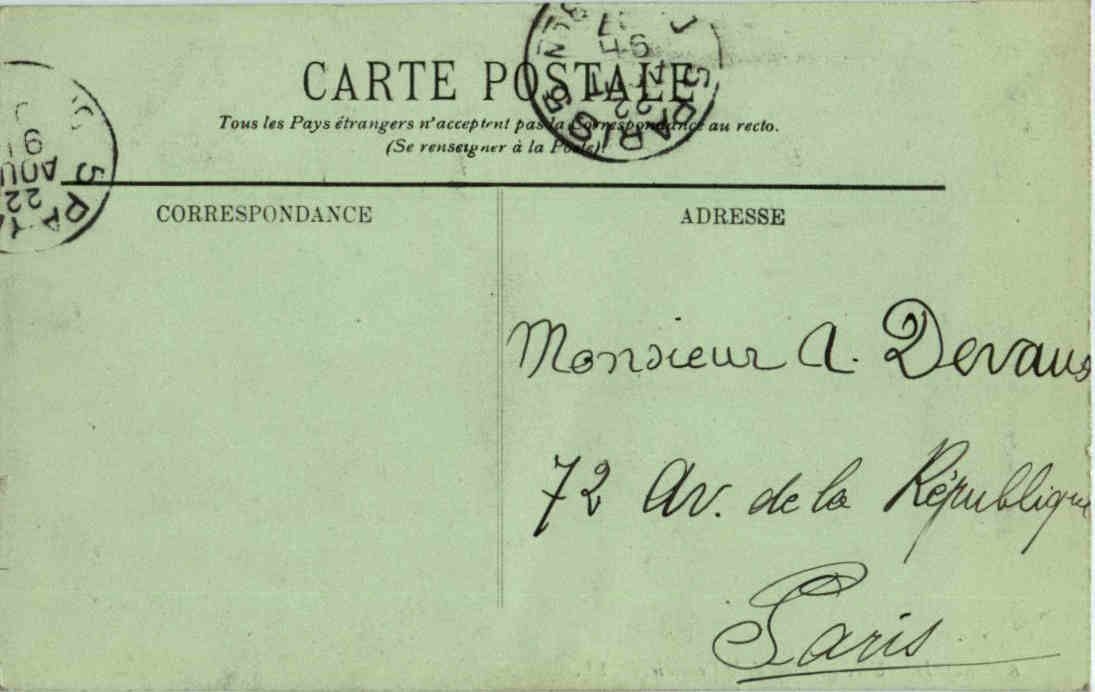 CARTE POSTALE
Tous les Pays étrangers n'acceptent pas la Correspondance au recto.
(Se renseigner à la Poste).
CORRESPONDANCE
ADRESSE
Monsieur A. Devaux
72 Av. de la République
Paris
PARIS
22
5 PA
AOU
22